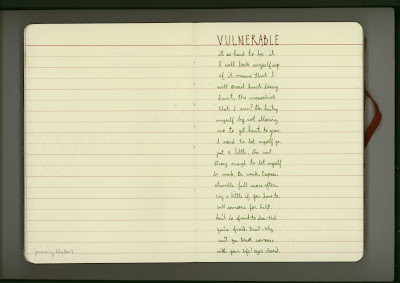 VULNERABLE
it is hard to be it.
I will lock myself up
if it means that I
will avoid hurt being
hurt, the
that I am? I'm
myself by not allowing
me to get hurt to grow.
I need to let myself go
just a little. I'm not
strong enough to let myself
be weak. Be weak. Expose.
stumble. fall more often.
cry a little if you have to.
call someone for help.
don't be afraid to show that
you're afraid. trust. why
can't you trust someone
with your life? eyes closed.
january